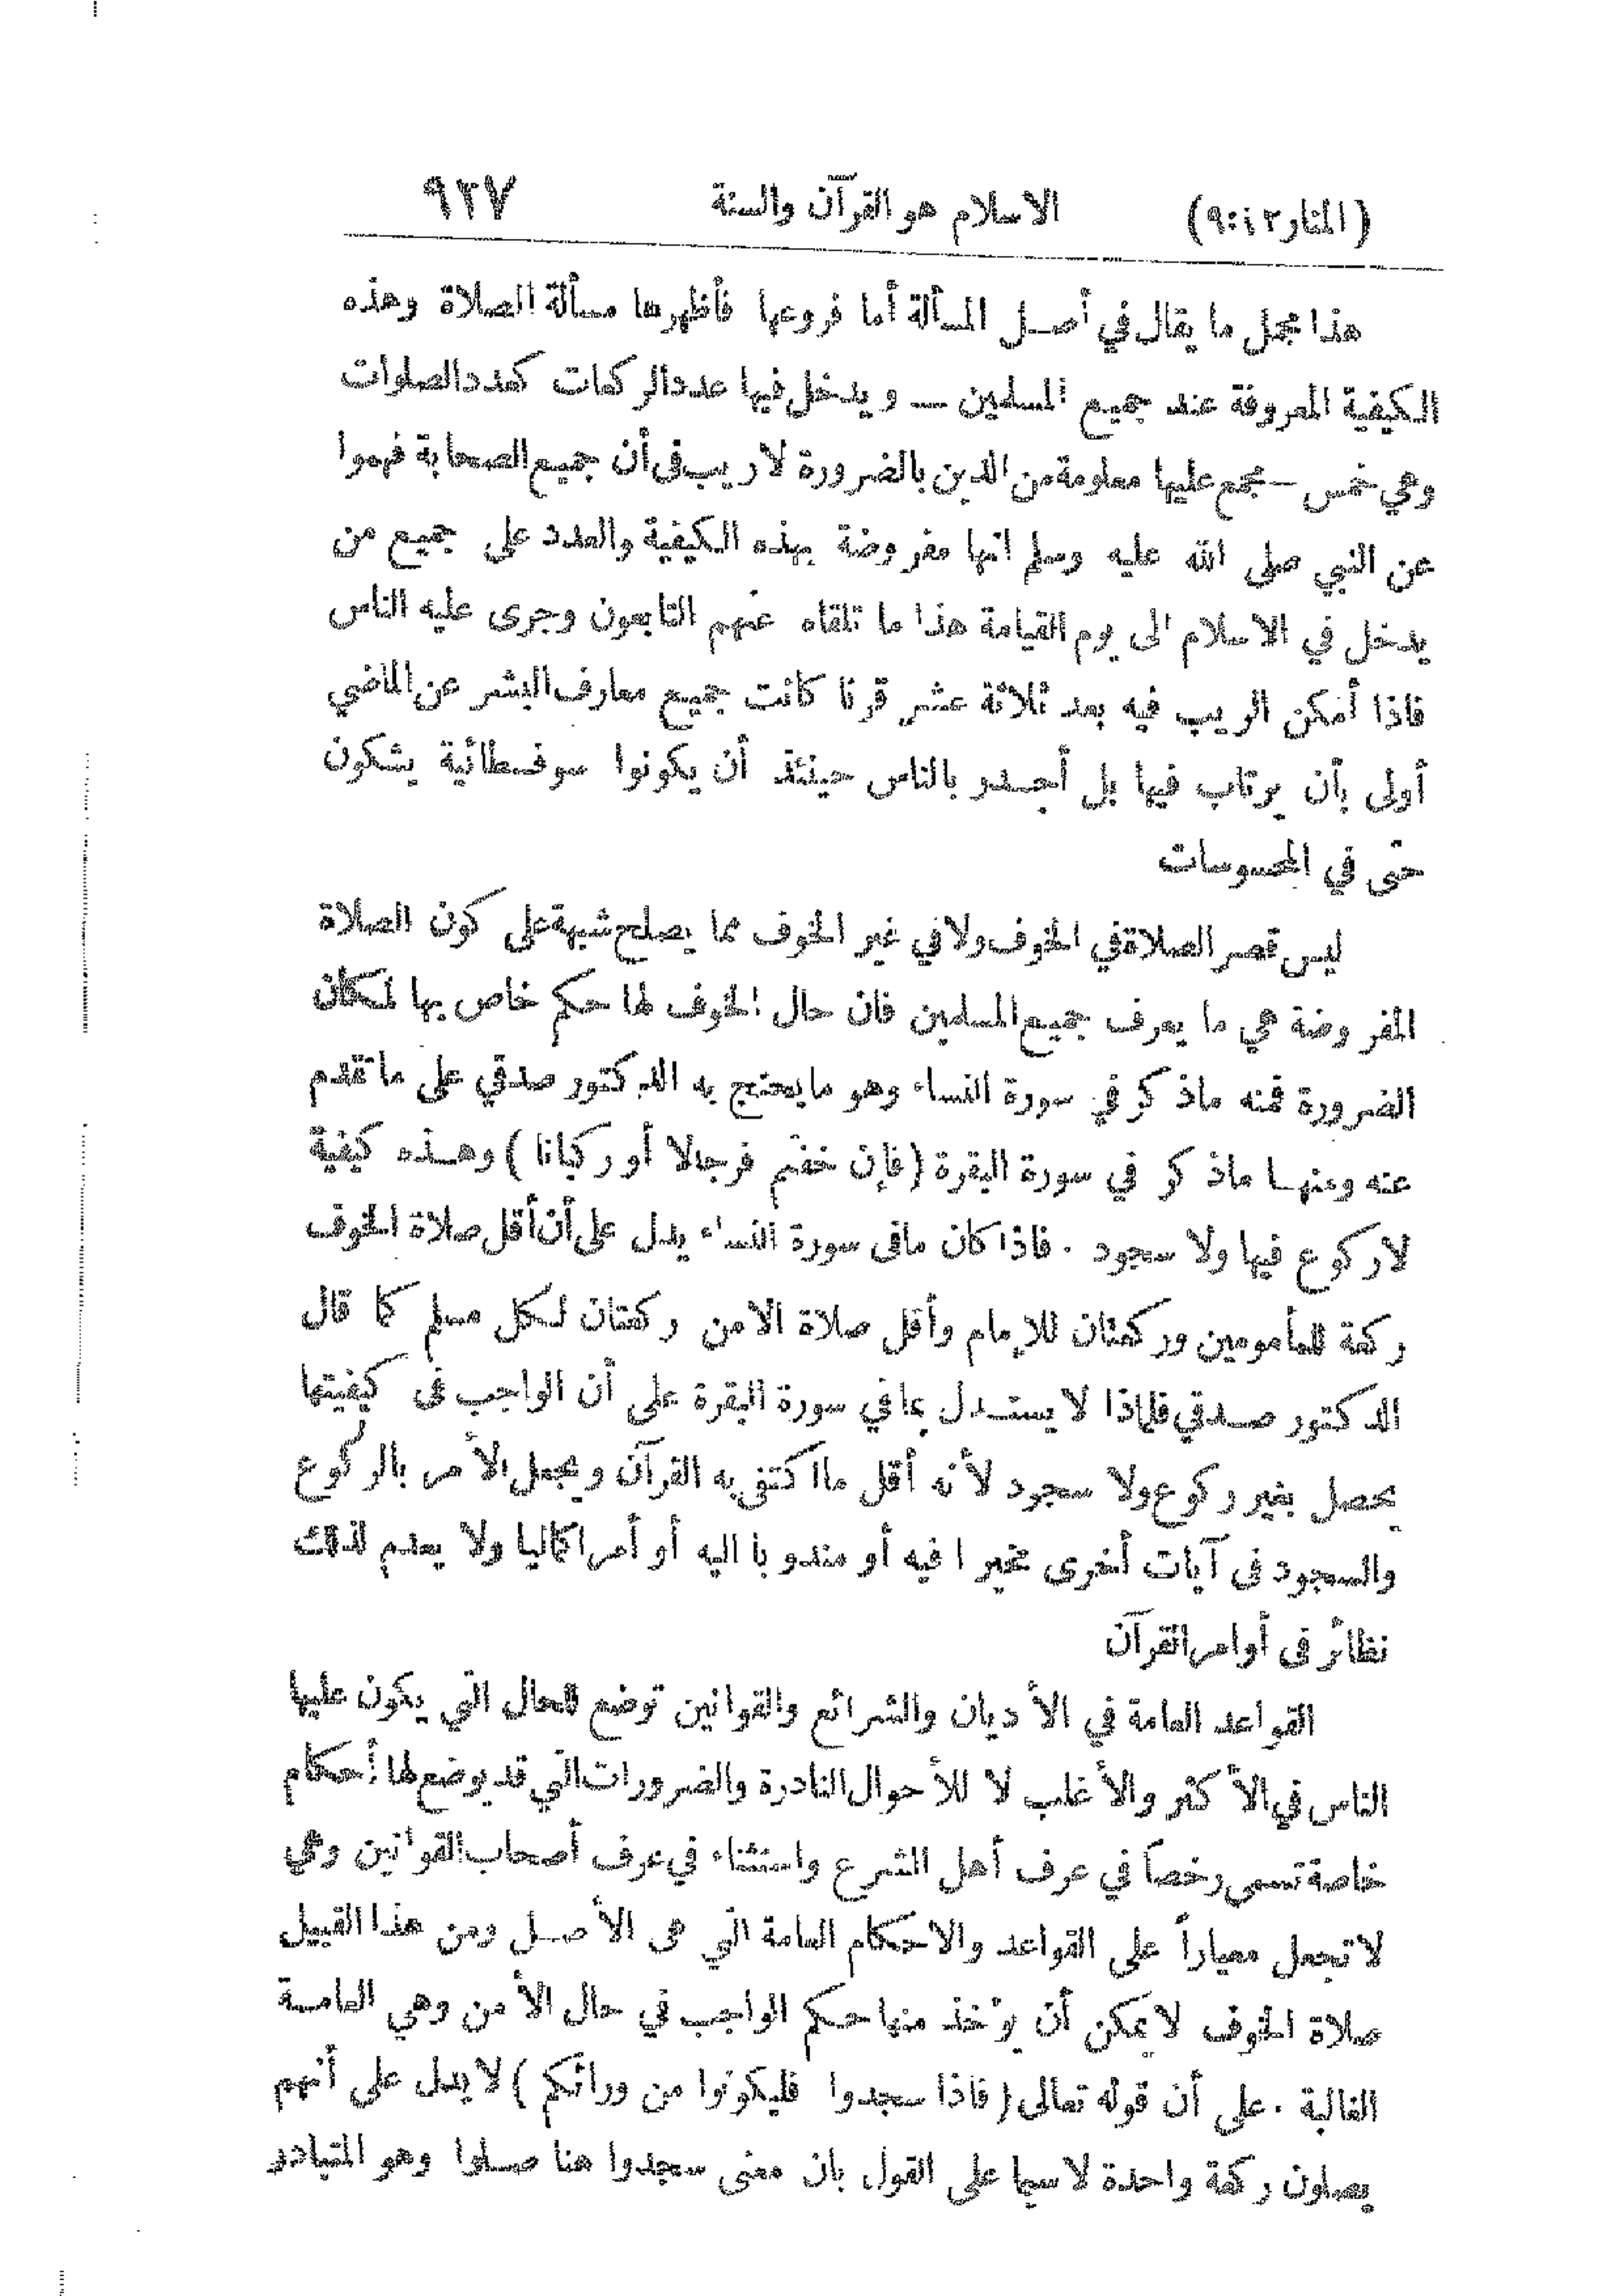 (المنار ١٢: ٩) الاسلام هو القرآن والسنة ٩٢٧
هذا مجمل ما يقال في أصل المسألة أما فروعها فأظهرها مسألة الصلاة وهذه
الكيفية المعروفة عند جميع المسلمين – ويدخل فيها عدد الركعات كعدد الصلوات
وهي خمس – مجمع عليها معلومة من الدين بالضرورة لا ريب فى أن جميع الصحابة فهموا
عن النبي صلى الله عليه وسلم انها مفروضة بهذه الكيفية والعدد على جميع من
يدخل في الاسلام الى يوم القيامة هذا ما تلقاه عنهم التابعون وجرى عليه الناس
فاذا أمكن الريب فيه بعد ثلاثة عشر قرنا كانت جميع معارف البشر عن الماضي
أولى بأن يرتاب فيها بل أجدر بالناس حينئذ أن يكونوا سوفسطائية يشكون
حتى في المحسوسات
ليس قصر الصلاة في الخوف ولا في غير الخوف مما يصلح شبهة على كون الصلاة
المفروضة هي ما يعرف جميع المسلمين فان حال الخوف لها حكم خاص بها لمكان
الضرورة فمنه ماذكر في سورة النساء وهو ما يحتج به الدكتور صدقي على ما تقدم
عنه ومنها ماذكر في سورة البقرة (فإن خفتم فرجالا أو ركبانا) وهذه كيفية
لا ركوع فيها ولا سجود . فاذا كان مافى سورة النساء يدل على أن أقل صلاة الخوف
ركعة للمأمومين وركعتان للإمام وأقل صلاة الامن ركعتان لكل مسلم كما قال
الدكتور صدقي فلماذا لا يستدل بما في سورة البقرة على أن الواجب فى كيفيتها
يحصل بغير ركوع ولا سجود لأنه أقل ما اكتفى به القرآن ويجعل الأمر بالركوع
والسجود فى آيات أخرى مخيرا فيه أو مندوبا اليه أو أمرا كماليا ولا يعدم لذلك
نظائر فى أوامر القرآن
القواعد العامة في الأديان والشرائع والقوانين توضع للحال التي يكون عليها
الناس في الأكثر والأغلب لا للأحوال النادرة والضرورات التي قد يوضع لها أحكام
خاصة تسمى رخصاً في عرف أهل الشرع واستثناء في عرف أصحاب القوانين وهي
لا تجعل معياراً على القواعد والاحكام العامة التي هى الأصل ومن هذا القبيل
صلاة الخوف لا يمكن أن يؤخذ منها حكم الواجب في حال الأمن وهي العامة
الغالبة . على أن قوله تعالى (فاذا سجدوا فليكونوا من ورائكم) لا يدل على أنهم
يصلون ركعة واحدة لا سيما على القول بان معنى سجدوا هنا صلوا وهو المتبادر